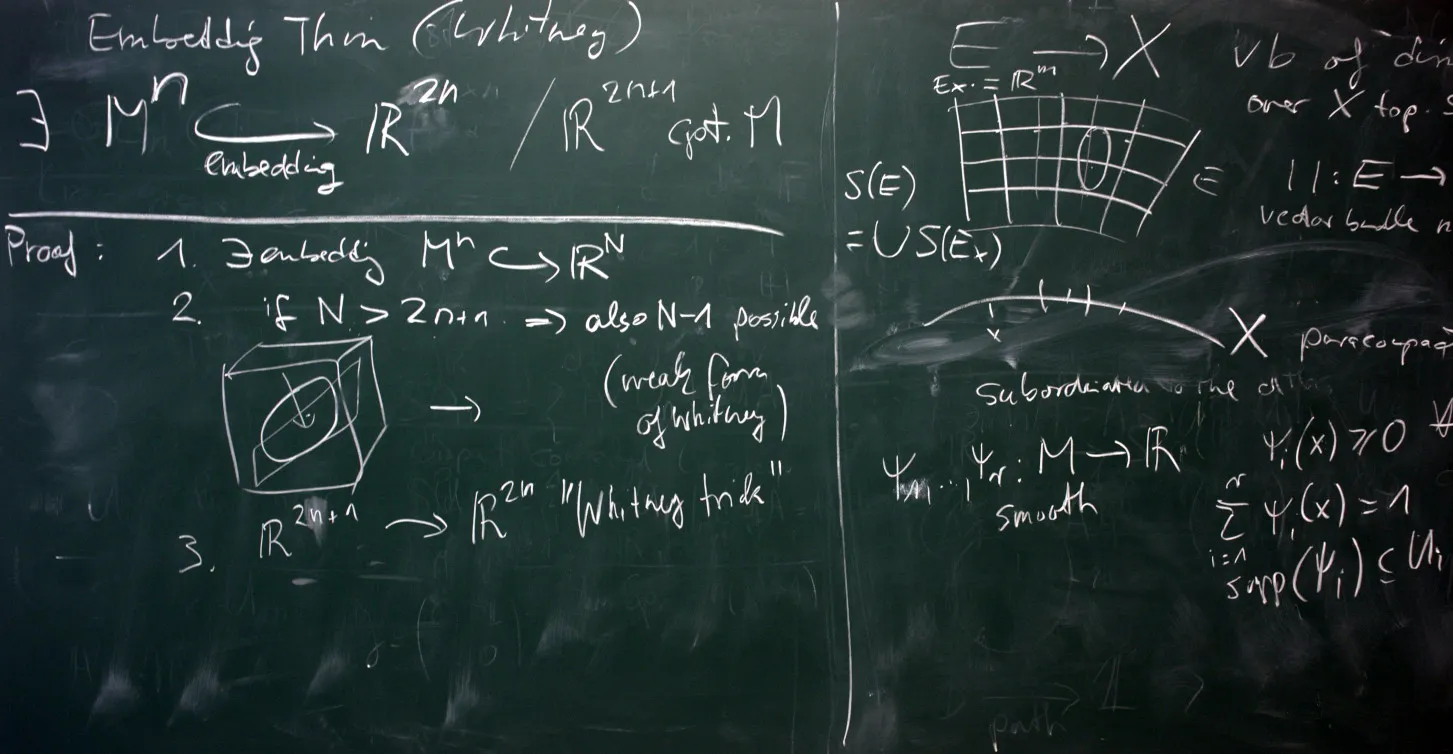 Embeddig Thm (Whitney)
∃ Mⁿ ↪ ℝ²ⁿ / ℝ²ⁿ⁺¹ cpt. M
embedding
Proof: 1. ∃ embeddig Mⁿ ↪ ℝᴺ
2. if N > 2n+1 ⇒ also N-1 possible
(weak form
of Whitney)
→
3. ℝ²ⁿ⁺¹ → ℝ²ⁿ "Whitney trick"
E → X vb of dim
Eₓ ≅ ℝᵐ
over X top.
S(E)
= ∪ S(Eₓ)
E
| | : E →
vector bundle
x
X paracompac
subordinated to the
Ψ₁, ..., Ψᵣ : M → ℝ
smooth
Ψᵢ(x) ≥ 0 ∀
r
∑ Ψᵢ(x) = 1
i=1
supp(Ψᵢ) ⊆ Uᵢ
path